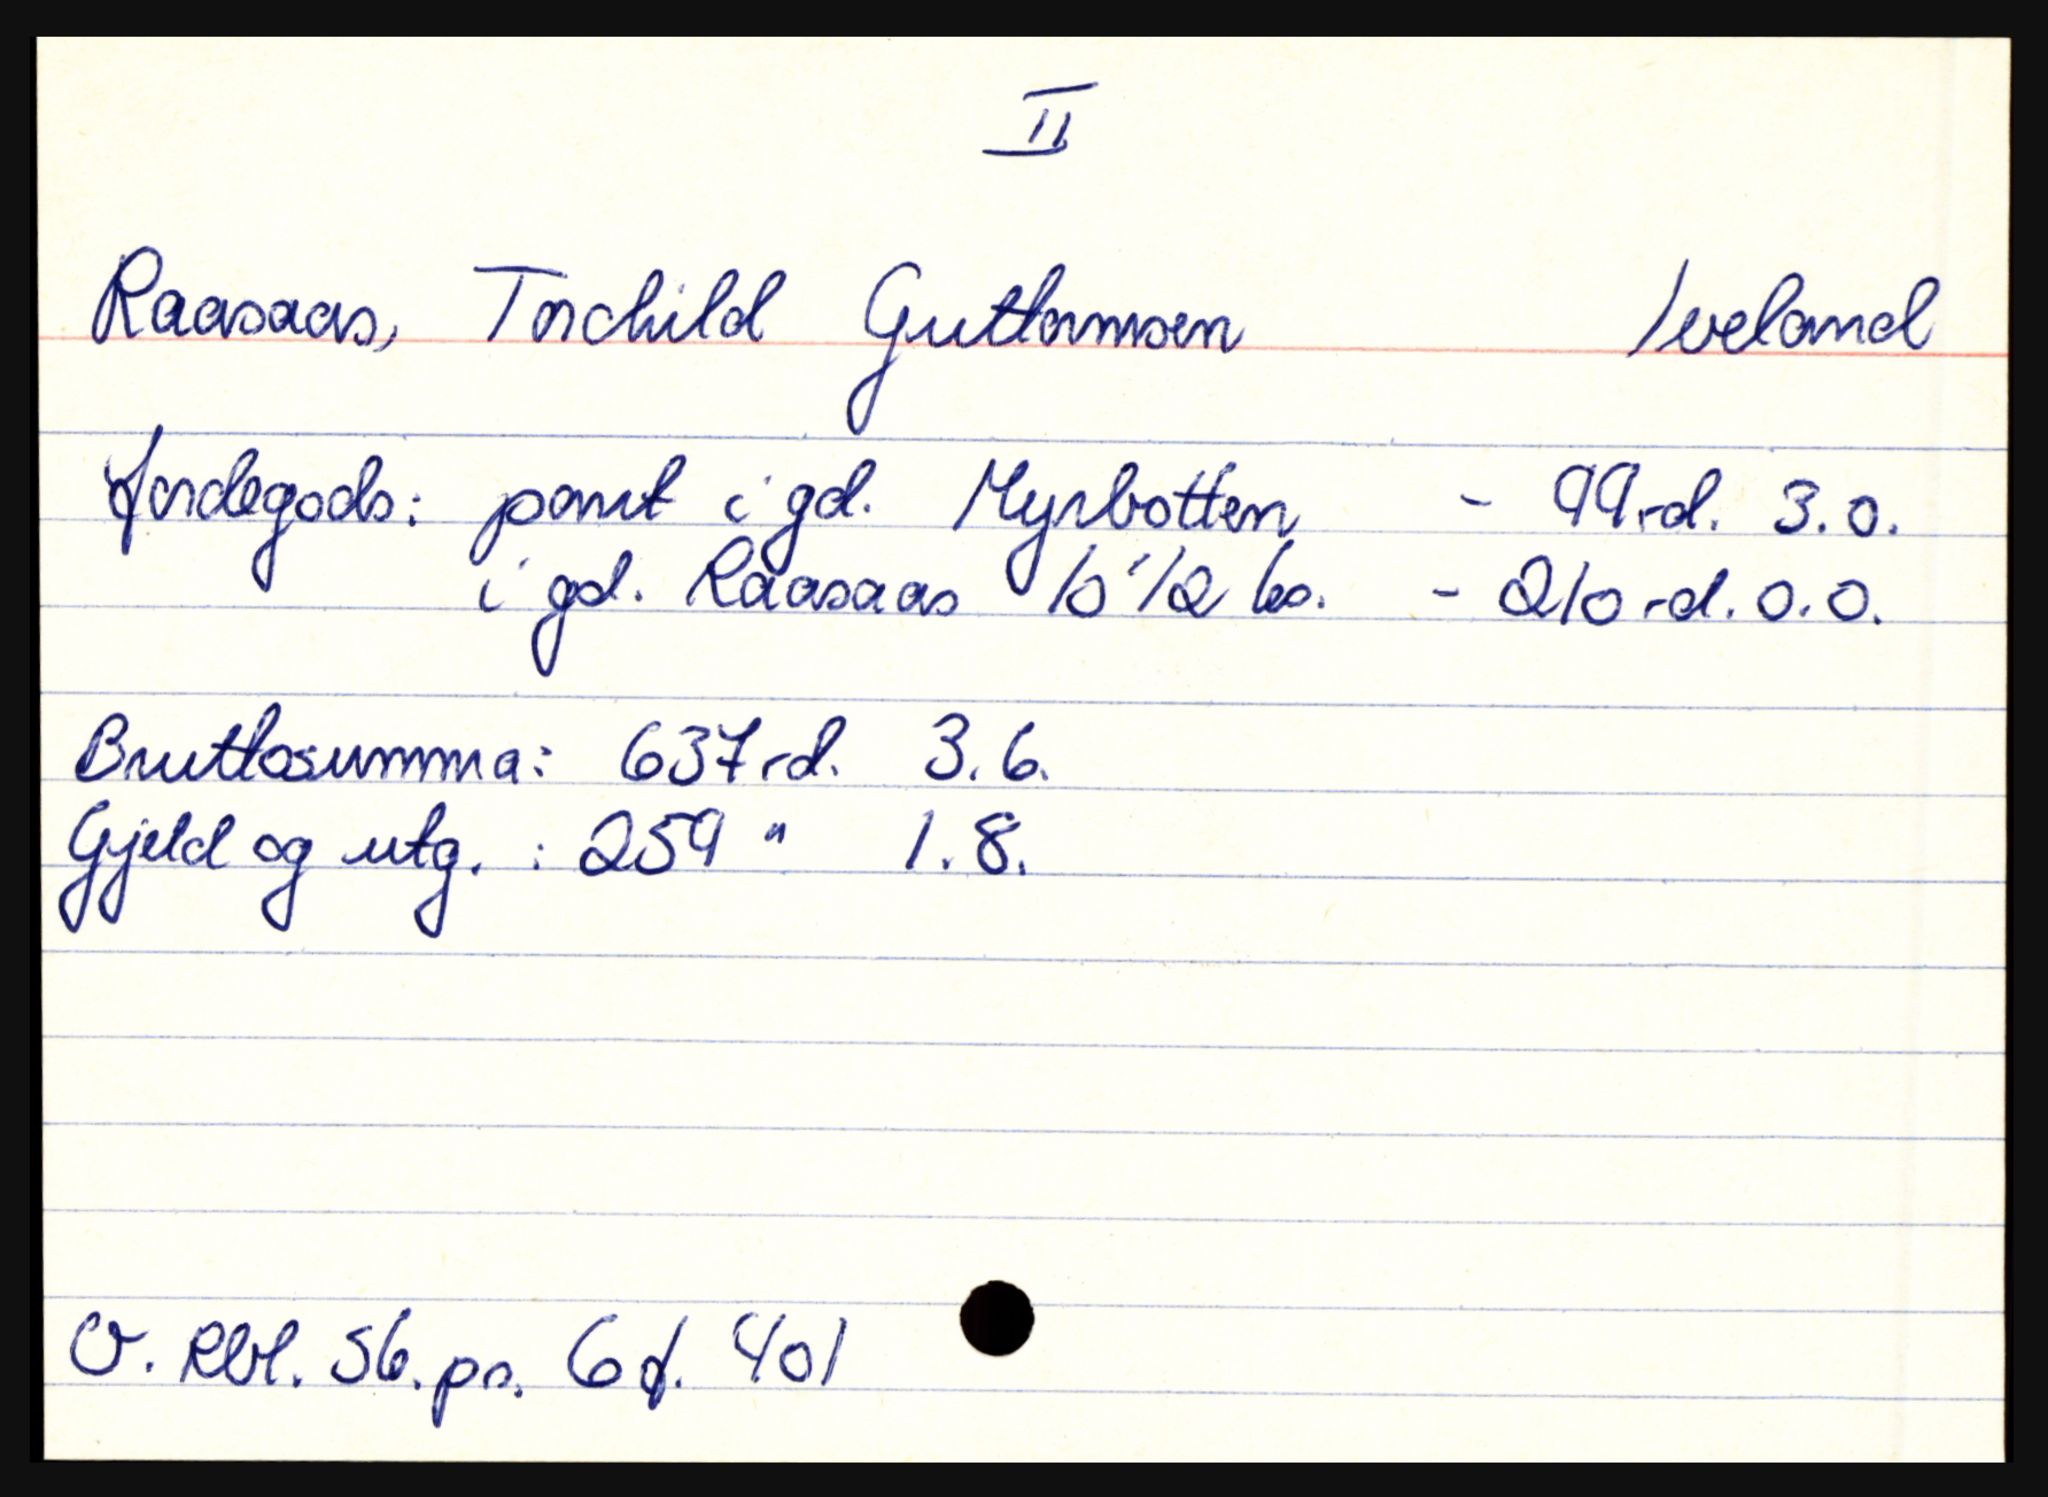 II
Raasaas, Torchild Guttormsen Iveland
Jordegods: pant i gd. Myrbotten - 99 rd. 3.0.
i gd. Raasaas 10 1/2 ks. - 210 rd. 0.0.
Bruttosumma: 637 rd. 3.6.
Gjeld og utg. : 259 " 1.8.
O. Rbl. Sk. pr. 6 f. 401